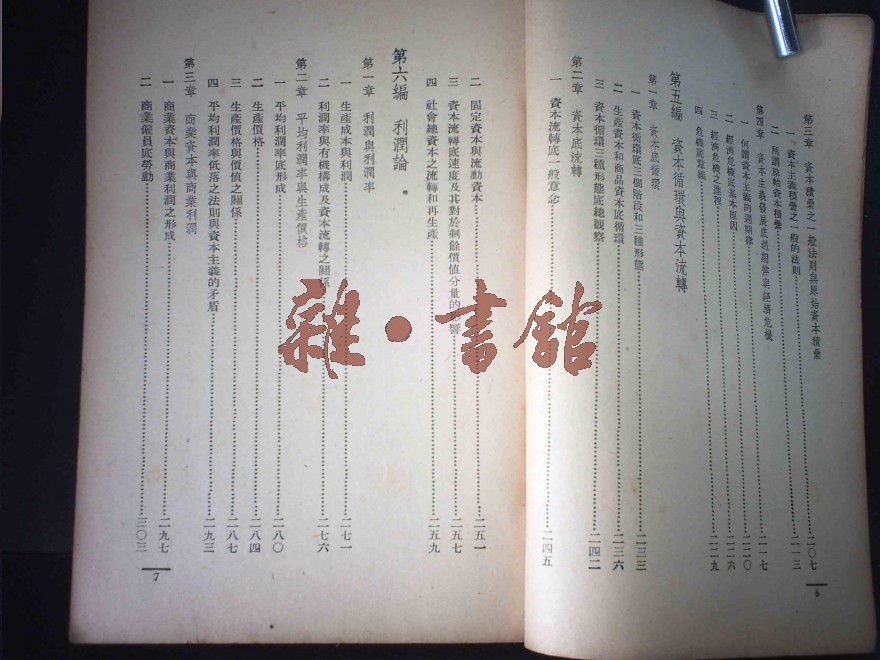 第三章 資本積彙之一般法則與原始資本積彙
一 資本主義積彙之一般的法則……二〇七
二 所謂原始資本積彙……二一三
第四章 資本主義發展底週期律與經濟危機……二一七
一 何謂資本主義的週期律……二二〇
二 經濟危機底基本原因……二二六
三 經濟危機之進程
四 危機底意義……二二九
第五編 資本循環與資本流轉
第一章 資本底循環
一 資本循環底三個階段和三種形態……二三三
二 生產資本和商品資本底循環……二三六
三 資本循環三種形態底總觀察……二四二
第二章 資本底流轉
一 資本流轉底一般意念……二四五
6
二 固定資本與流動資本……二五一
三 資本流轉底速度及其對於剩餘價值分量的影響……二五七
四 社會總資本之流轉和再生產……二五九
第六編 利潤論
第一章 利潤與利潤率
一 生產成本與利潤……二七一
二 利潤率與有機構成及資本流轉之關係……二七六
第二章 平均利潤率與生產價格
一 平均利潤率底形成……二八〇
二 生產價格……二八四
三 生產價格與價值之關係……二八七
四 平均利潤率低落之法則與資本主義的矛盾……二九三
第三章 商業資本與商業利潤
一 商業資本與商業利潤之形成……二九七
二 商業僱員底勞動……三〇三
7
雜·書館